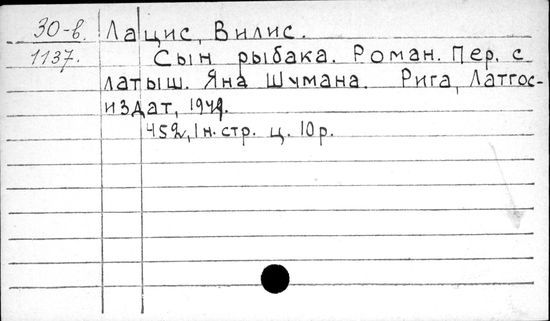 30-в. Лацис, Вилис.
1137. Сын рыбака. Роман. Пер. с
латыш. Яна Шумана. Рига, Латгос-
издат,
452, 1 н. стр. ц. 10 р.